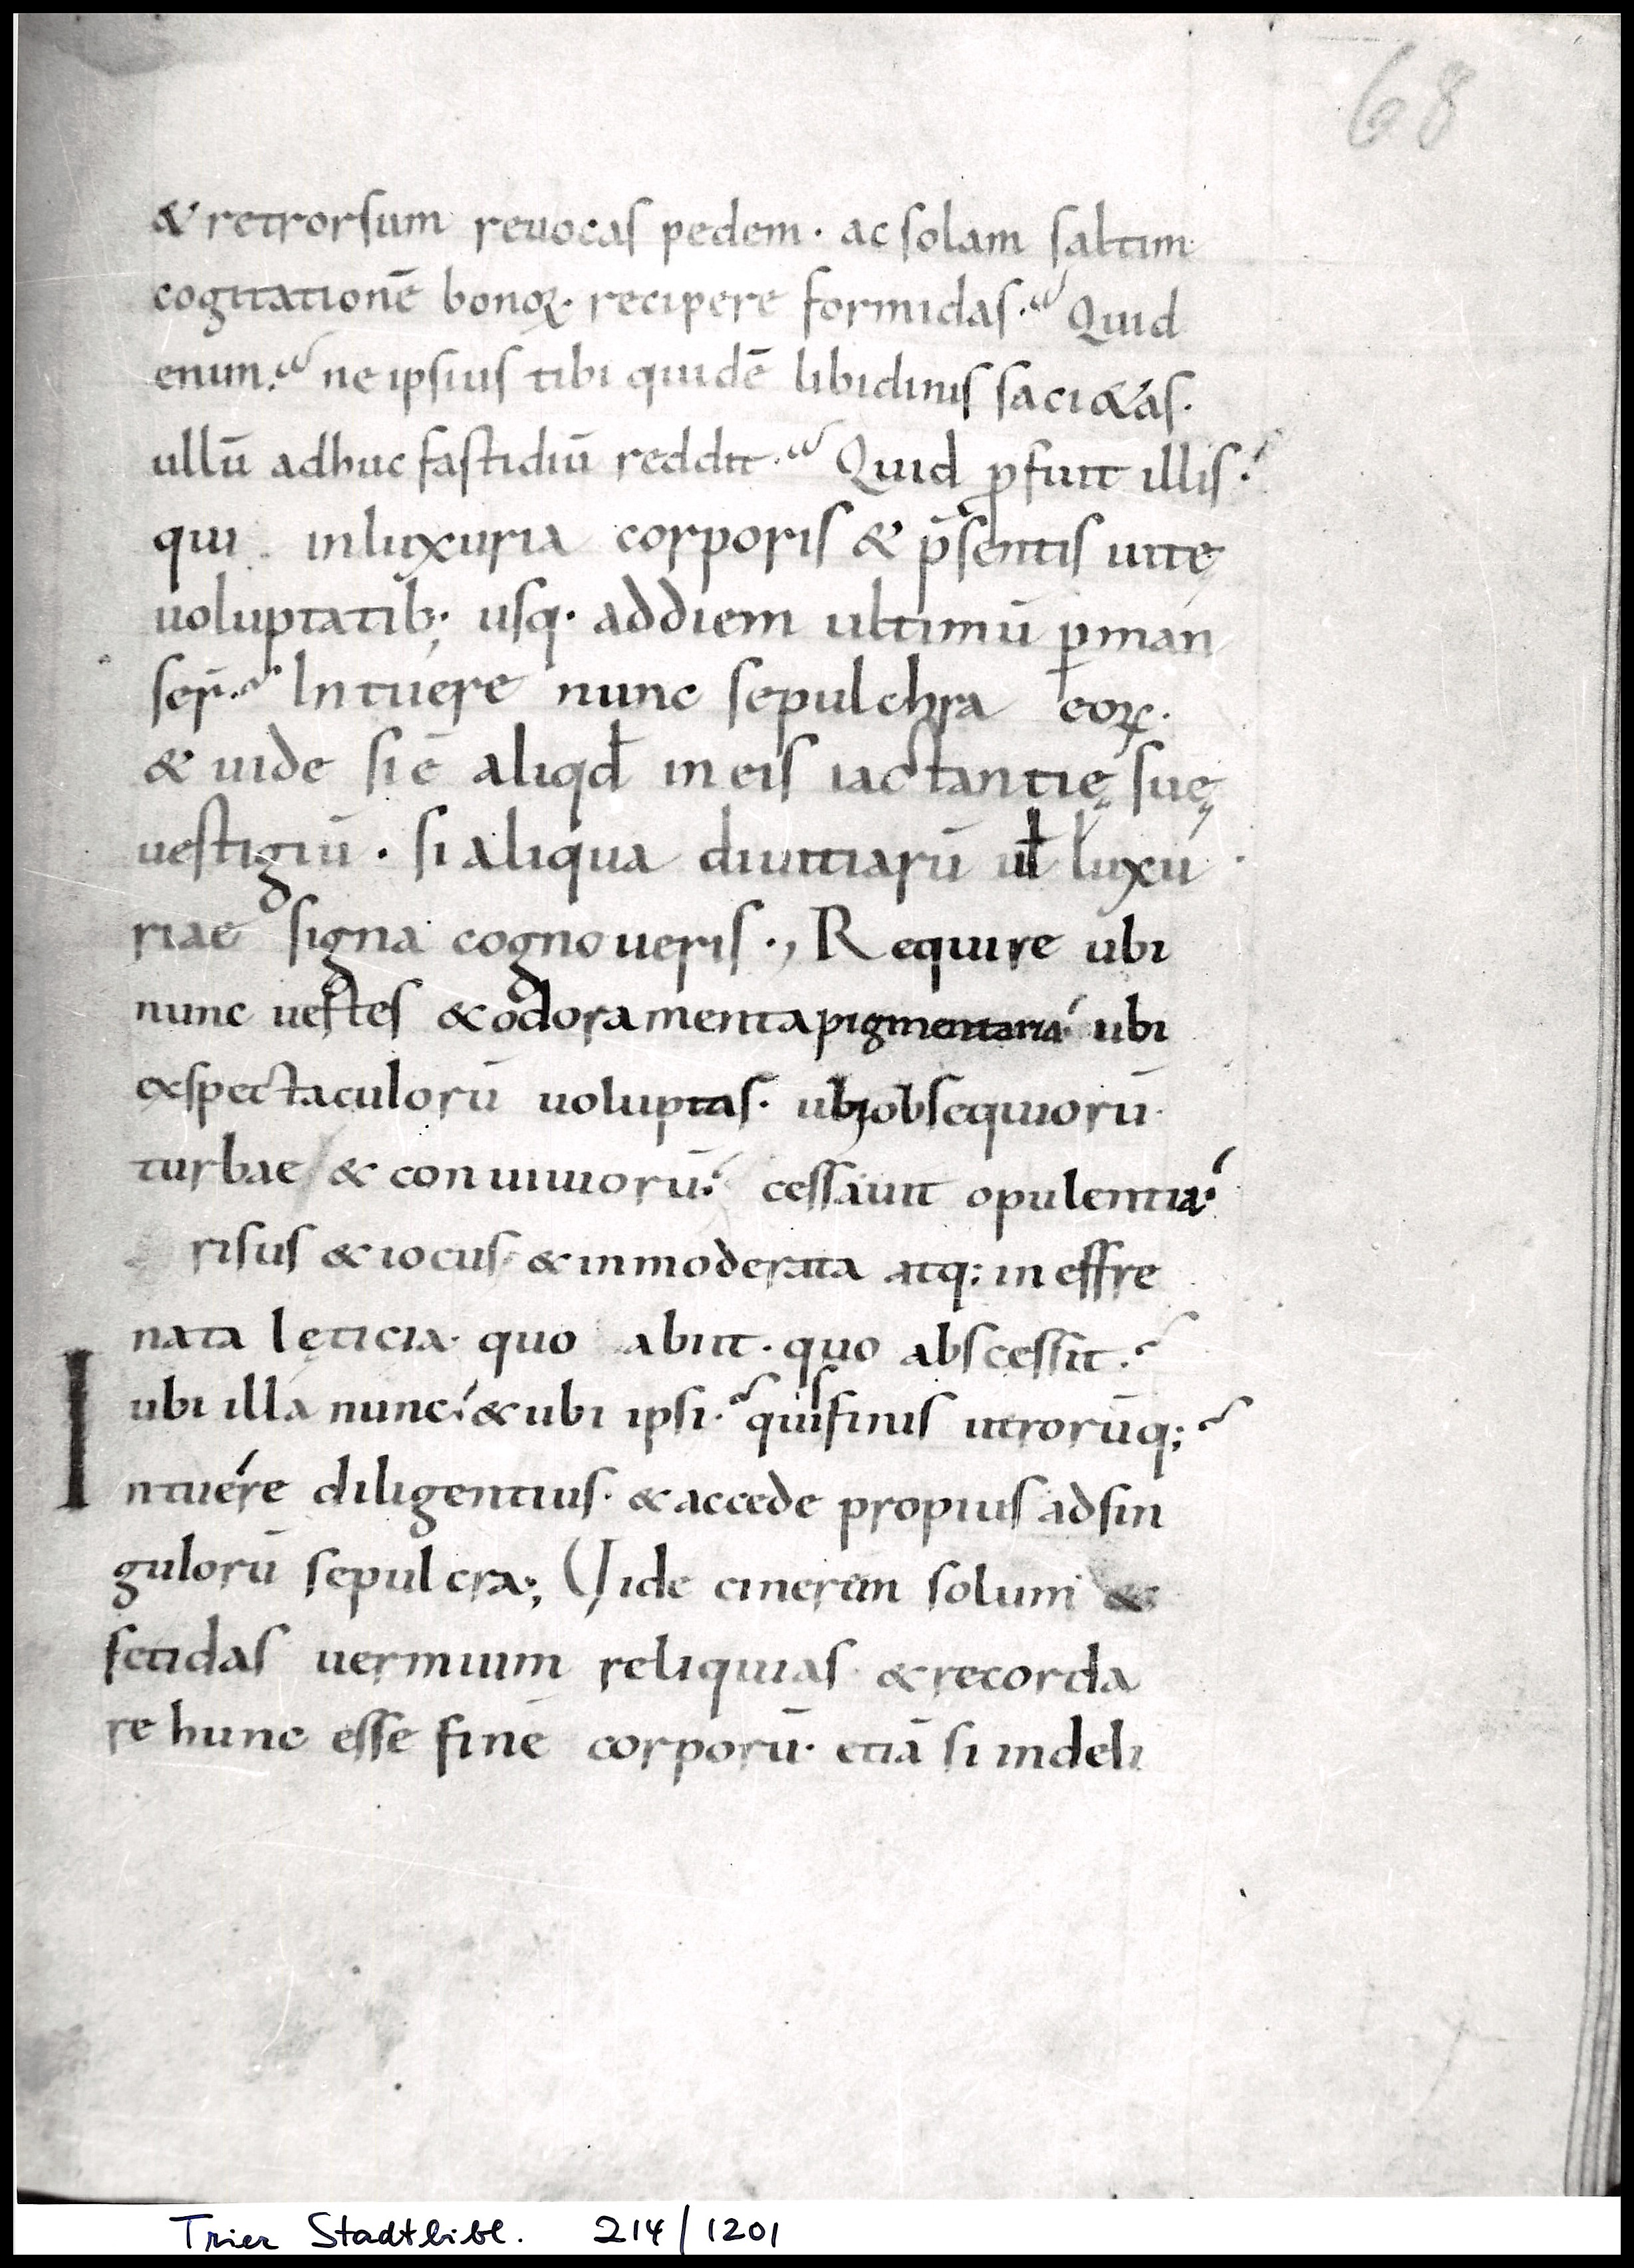 68
& retrorsum reuocas pedem · ac solam saltim
cogitationē bonoꝝ· recipere formidas· Quid
enim· ne ipsius tibi quidē libidinis saci&as·
ullū adhuc fastidiū reddit· Quid ꝓfuit illis·
qui in luxuria corporis & p̄sentis uitę
uoluptatib; usq· ad diem ultimū ꝑman
ser̄· Intuere nunc sepulchra eoꝝ·
& uide si ē aliqd̄ in eis iactantię suę
uestigiū · si aliqua diuitiarū uł luxu
riae signa cognoueris ·, Require ubi
nunc uestes & odoramenta pigmentaria· ubi
exspectaculorū uoluptas· ubi obsequiorū
turbae & conuiuiorū· cessauit opulentia·
risus & iocus· & inmoderata atq; in effre
nata lęticia· quo abiit · quo abscessit·
ubi illa nunc· & ubi ipsi· quis finis utrorūq;
Intuere diligentius· & accede propius ad sin
gulorū sepulcra·, Vide cinerem solum &
fetidas uermium reliquias· & recorda
re hunc esse finē corporū· etiā si in deli
Trier Stadtbibl. 214/1201